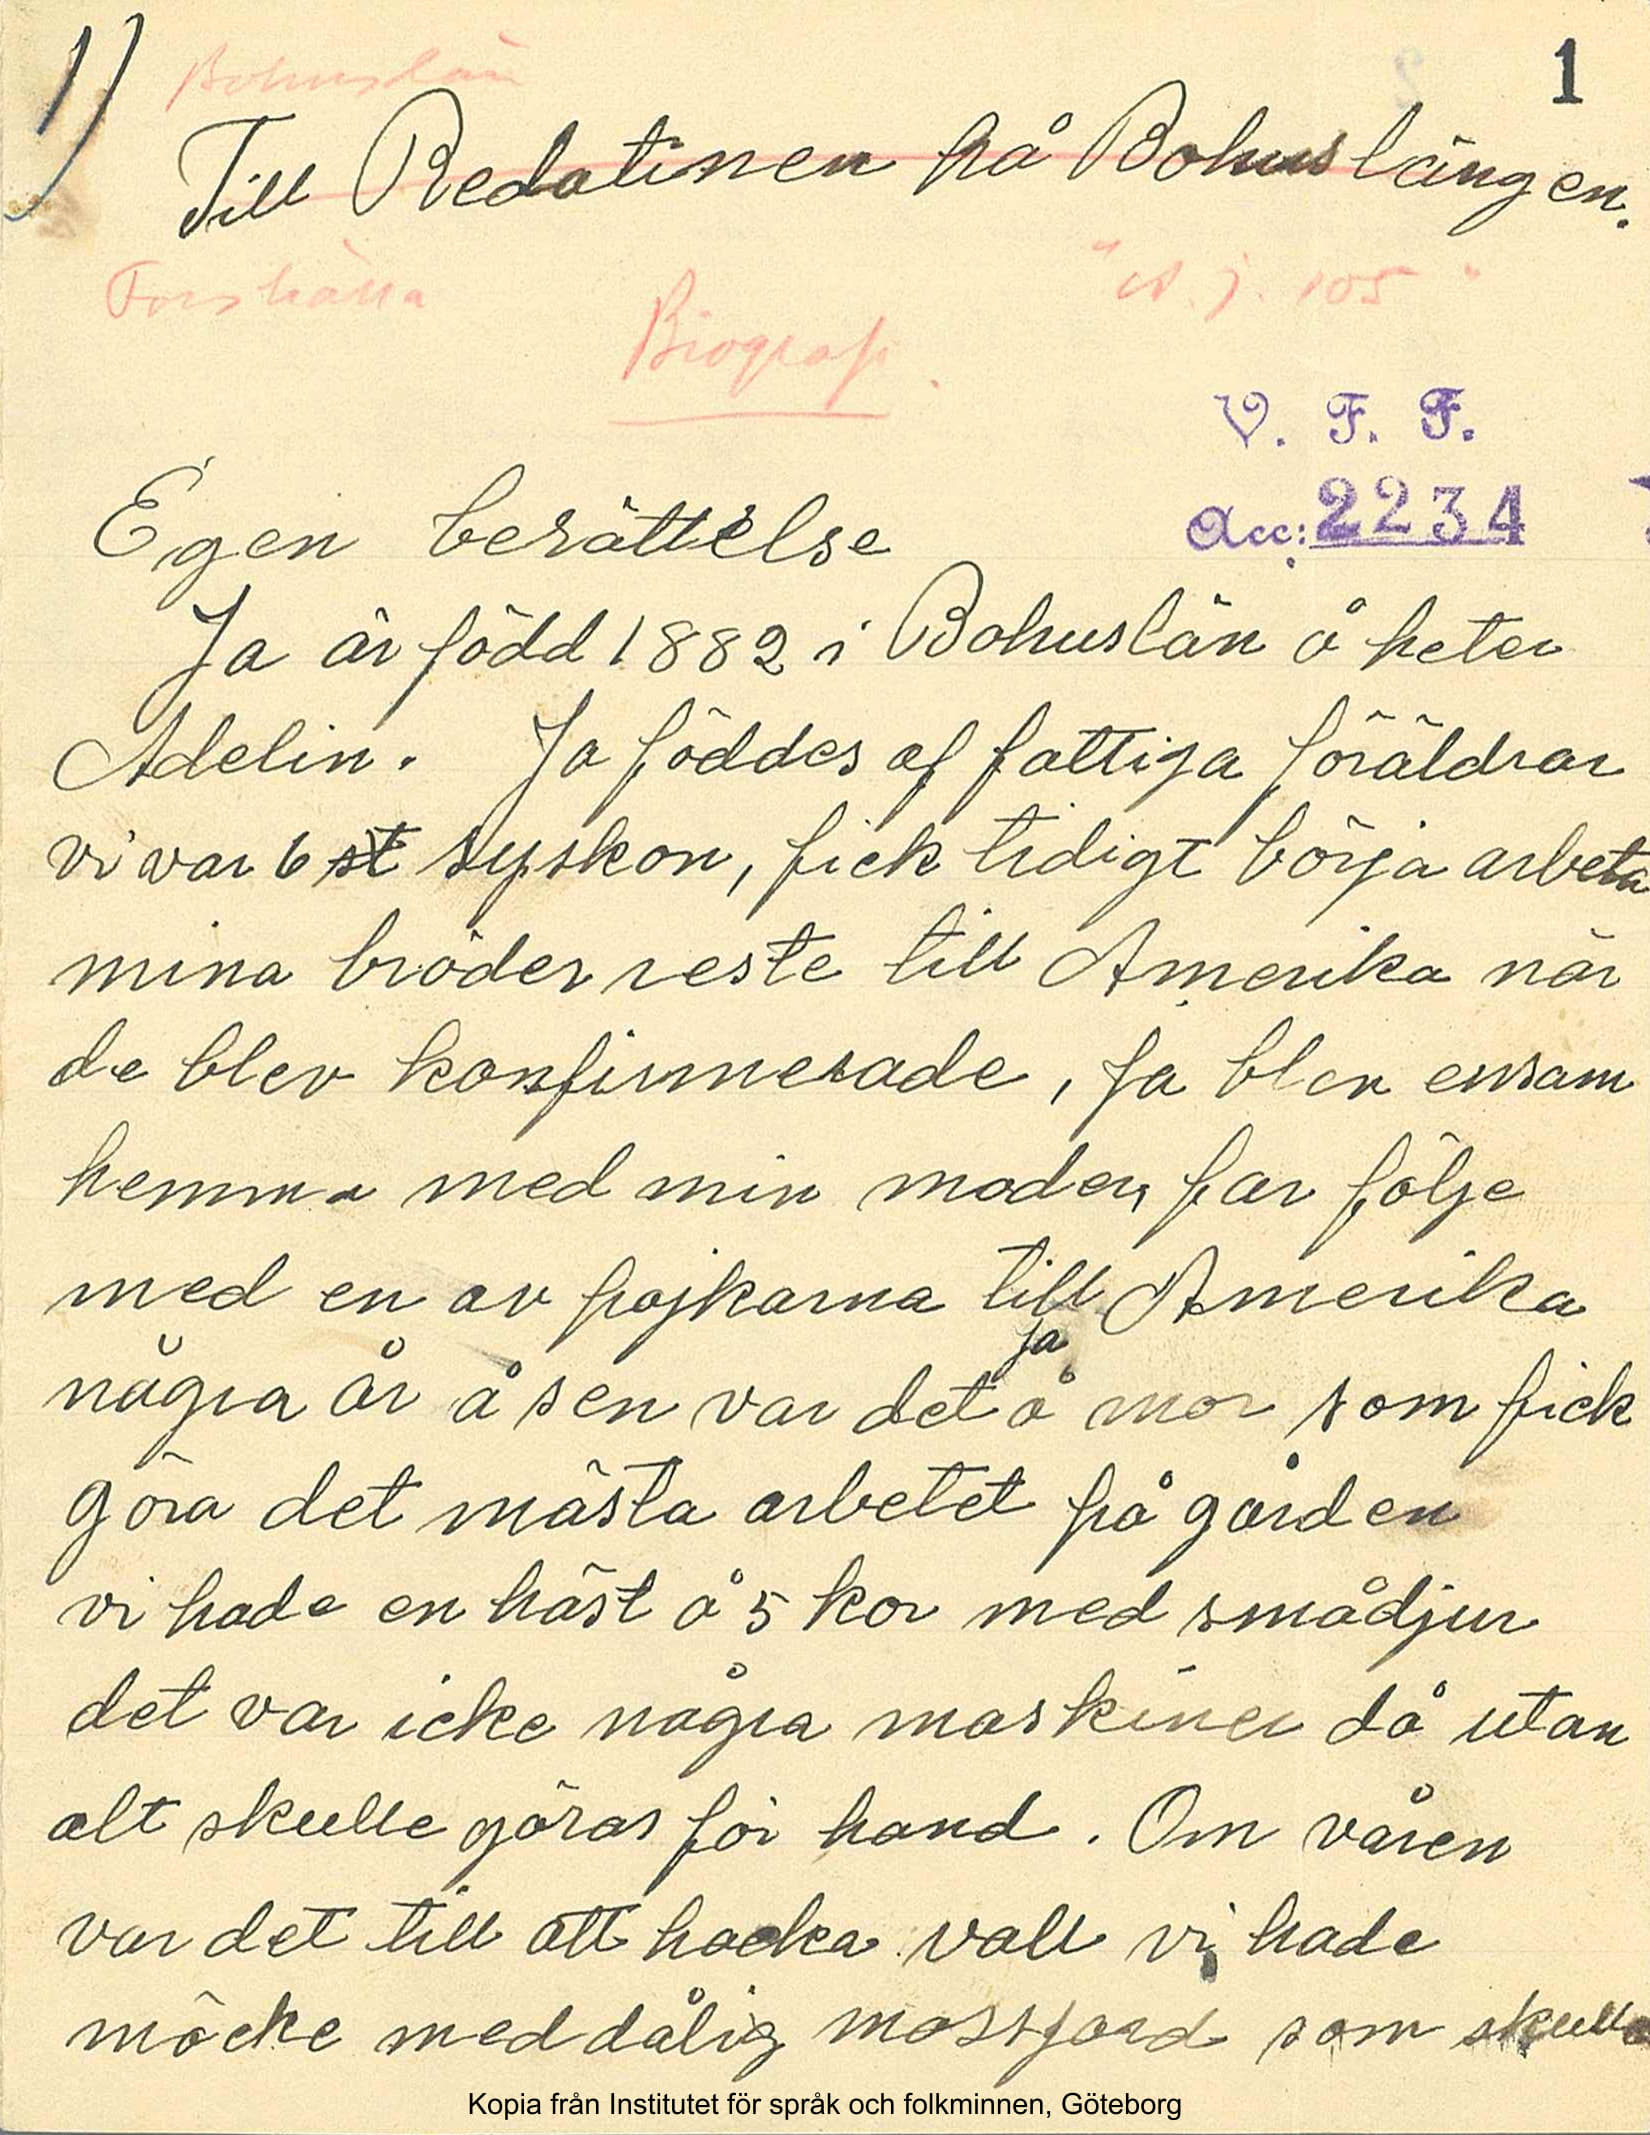 1)
1
Bohuslän
Till Redatinen på Bohuslängen.
Forshälla
"A. J. 105"
Biografi.
V. F. F.
Acc: 2234
Egen berättelse
Ja är född 1882 i Bohuslän å heter
Adelin. Ja föddes af fattiga föräldrar
vi var 6 st syskon, fick tidigt börja arbeta
mina bröder reste till Amerika när
de blev konfirmerade, Ja blev ensam
hemma med min moder, far följe
med en av pojkarna till Amerika
ja
några år å sen var det å mor som fick
göra det mästa arbetet på gården
vi hade en häst å 5 kor med smådjur
det var icke några maskiner då utan
alt skulle göras för hand. Om våren
var det till att hacka vall vi hade
möcke med dålig mossjord som skulle
Kopia från Institutet för språk och folkminnen, Göteborg